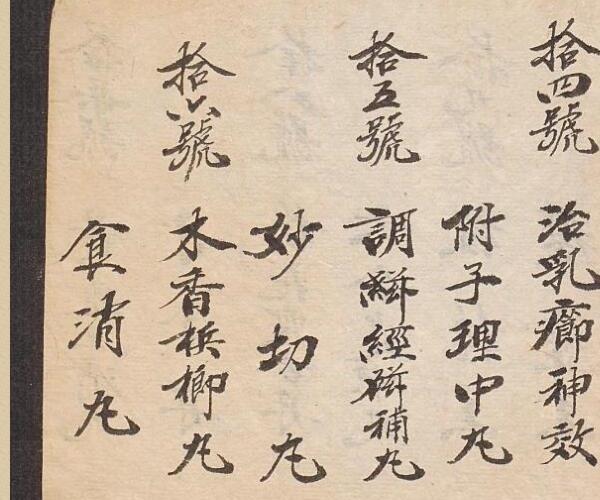 拾四號 治乳癤神效
附子理中丸
拾五號 調經補丸
妙切丸
拾六號 木香梹榔丸
食消丸